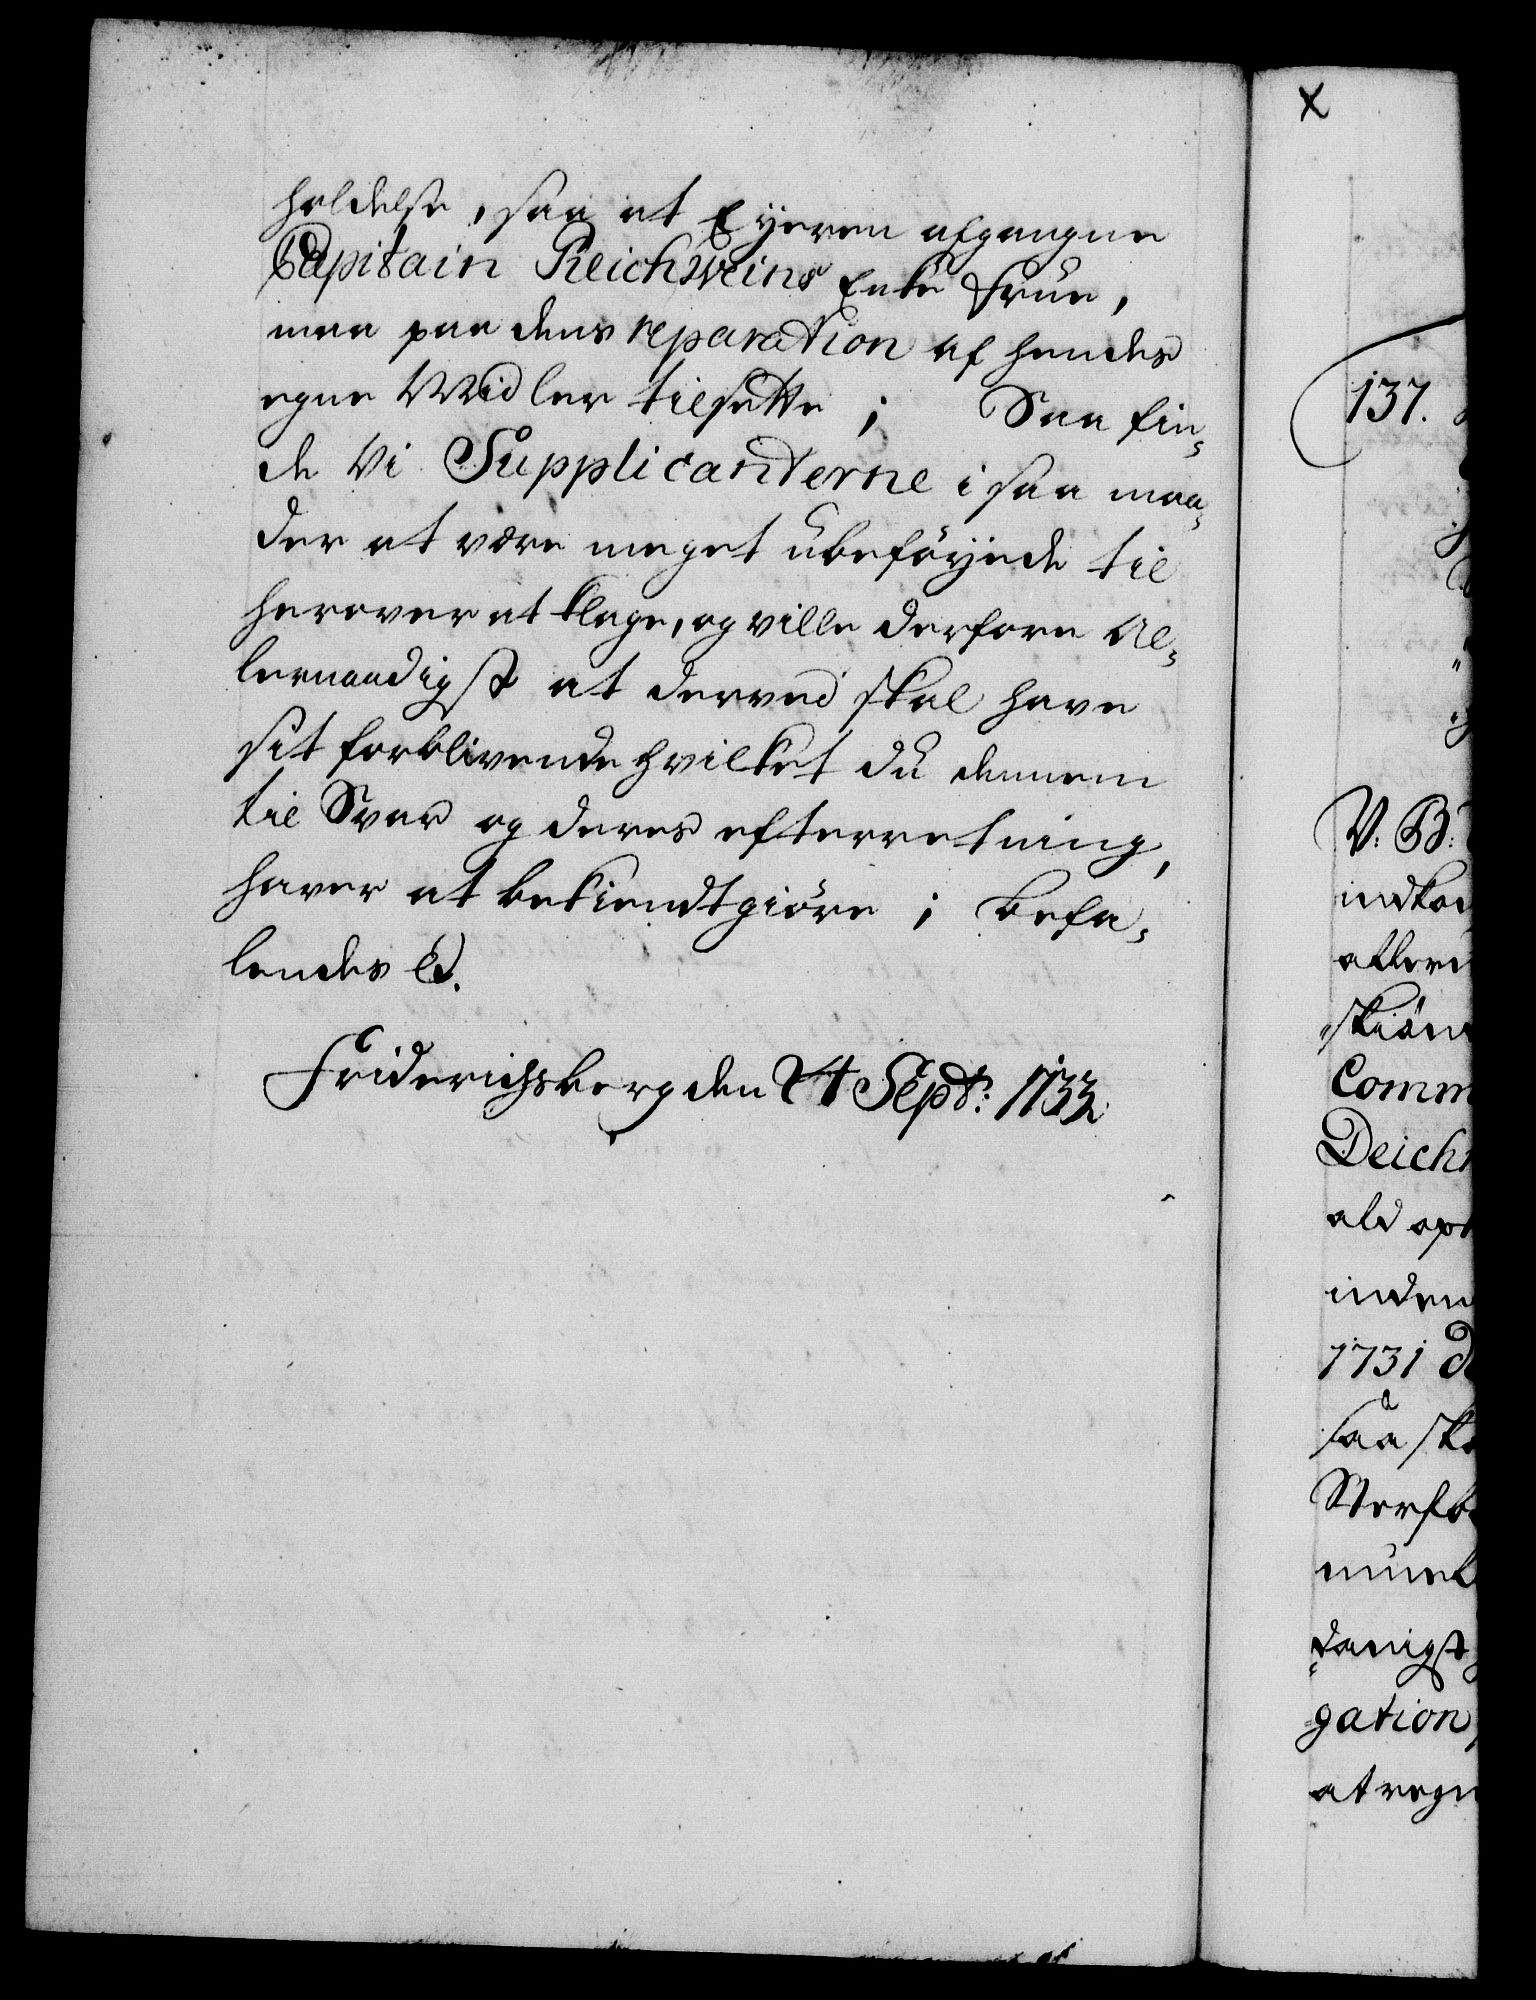 holdelse, saa at Eyeren afgangne
Capitain Reichweins Enke Frue,
maa paa dens reparation af hendes
egne Midler tilsette; Saa fin-
de Vi Supplicanterne i saa maa-
der at være meget ubeföyede til
herover at klage, og ville derfore Al-
lernaadigst at derved skal have
sit forblivende hvilket du dennem
til Svar og deres efterretning,
haver at bekiendtgiöre; befa-
lendes &.
Friderichsberg den 24 Sept: 1733.
X
137.
V: B:
indkom
allerun
skiön
Comm
Deichm
ald op
inden
1731 d
saa ska
Sterfbo
danigst
gation,
at regn